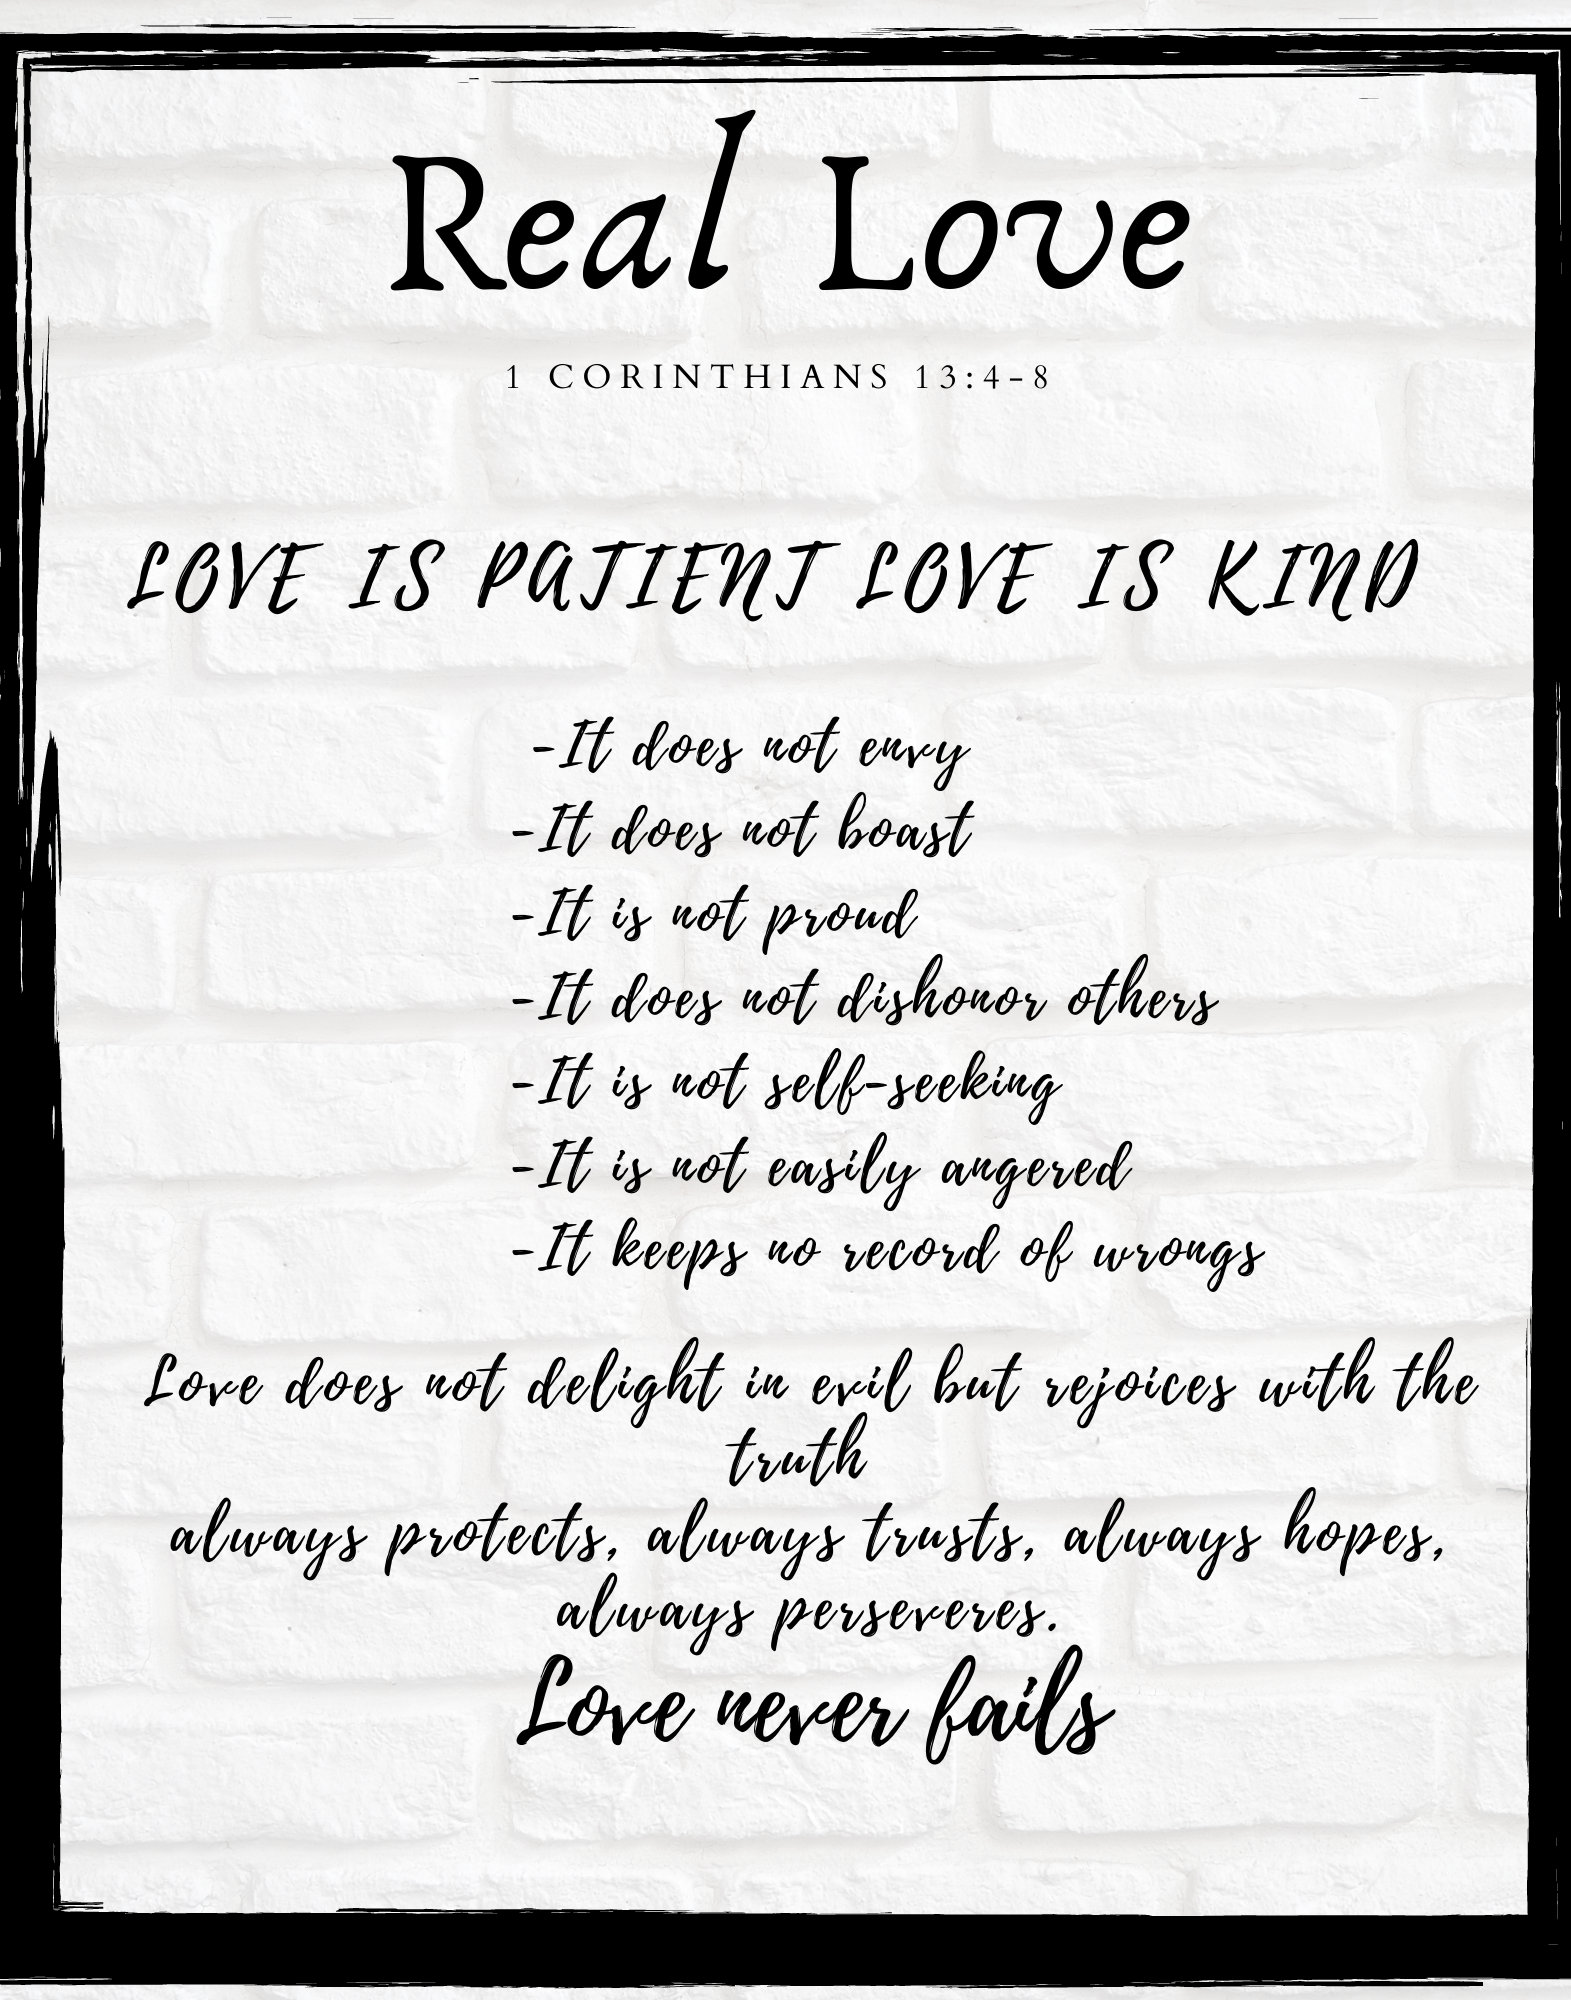 Real Love
1 CORINTHIANS 13:4-8
LOVE IS PATIENT LOVE IS KIND
-It does not envy
-It does not boast
-It is not proud
-It does not dishonor others
-It is not self-seeking
-It is not easily angered
-It keeps no record of wrongs
Love does not delight in evil but rejoices with the
truth
always protects, always trusts, always hopes,
always perseveres.
Love never fails